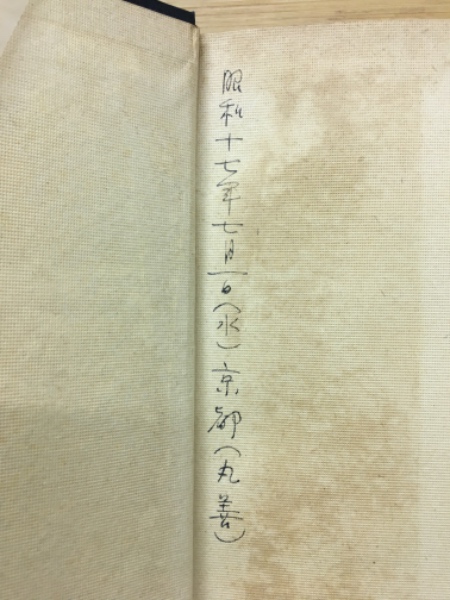 昭和十七年七月一日(水)京都(丸善)